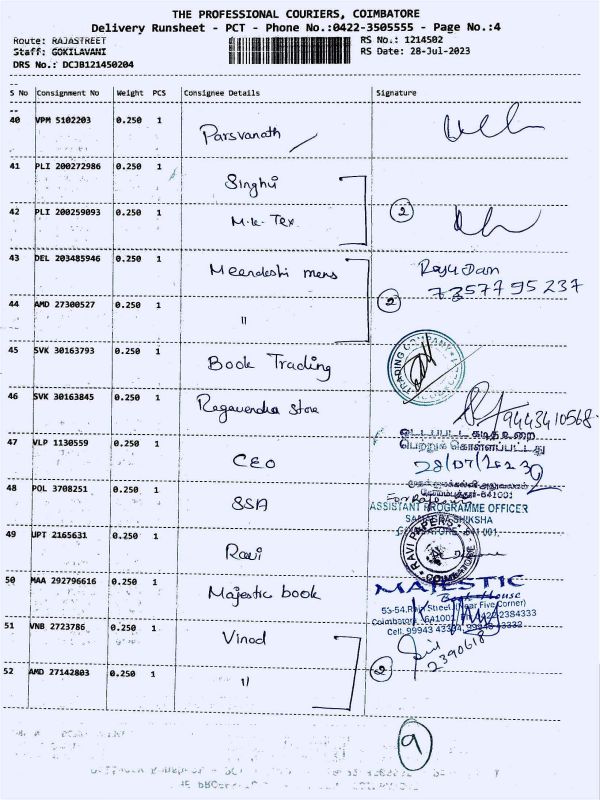 THE PROFESSIONAL COURIERS, COIMBATORE
Delivery Runsheet - PCT - Phone No.:0422-3505555 - Page No.:4
Route: RAJASTREET
RS No.: 1214502
Staff: GOKILAVANI
RS Date: 28-Jul-2023
DRS No.: DCJB121450204
S No Consignment No Weight PCS Consignee Details Signature
40 VPM 5102203 0.250 1 Parsvanath
41 PLI 200272986 0.250 1 Singhvi
42 PLI 200259093 0.250 1 M.k. Tex 2
43 DEL 203485946 0.250 1 Meenakshi mens
7357795237
44 AMD 27300527 0.250 1 "
2
45 SVK 30163793 0.250 1 Book Trading
TRADING COMPANY
46 SVK 30163845 0.250 1 Ragavendra Store
9443410568
ஒப்படைப்பட்ட கடித உறை
பெற்றுக் கொள்ளப்பட்டது
47 VLP 1130559 0.250 1 CEO
28/07/2023
641001
48 POL 3708251 0.250 1 SSA
ASSISTANT PROGRAMME OFFICER
SHIKSHA
641 001.
49 UPT 2165631 0.250 1 Ravi
RAVI PAPERS
COIMBATORE
50 MAA 292796616 0.250 1 Majestic book
MAJESTIC
Book House
53-54, Raja Street, (Near Five Corner)
Coimbatore 641001
2384333
Cell: 99943 43334,
51 VNB 2723786 0.250 1 Vinod
2390618
52 AMD 27142803 0.250 1 "
2
9